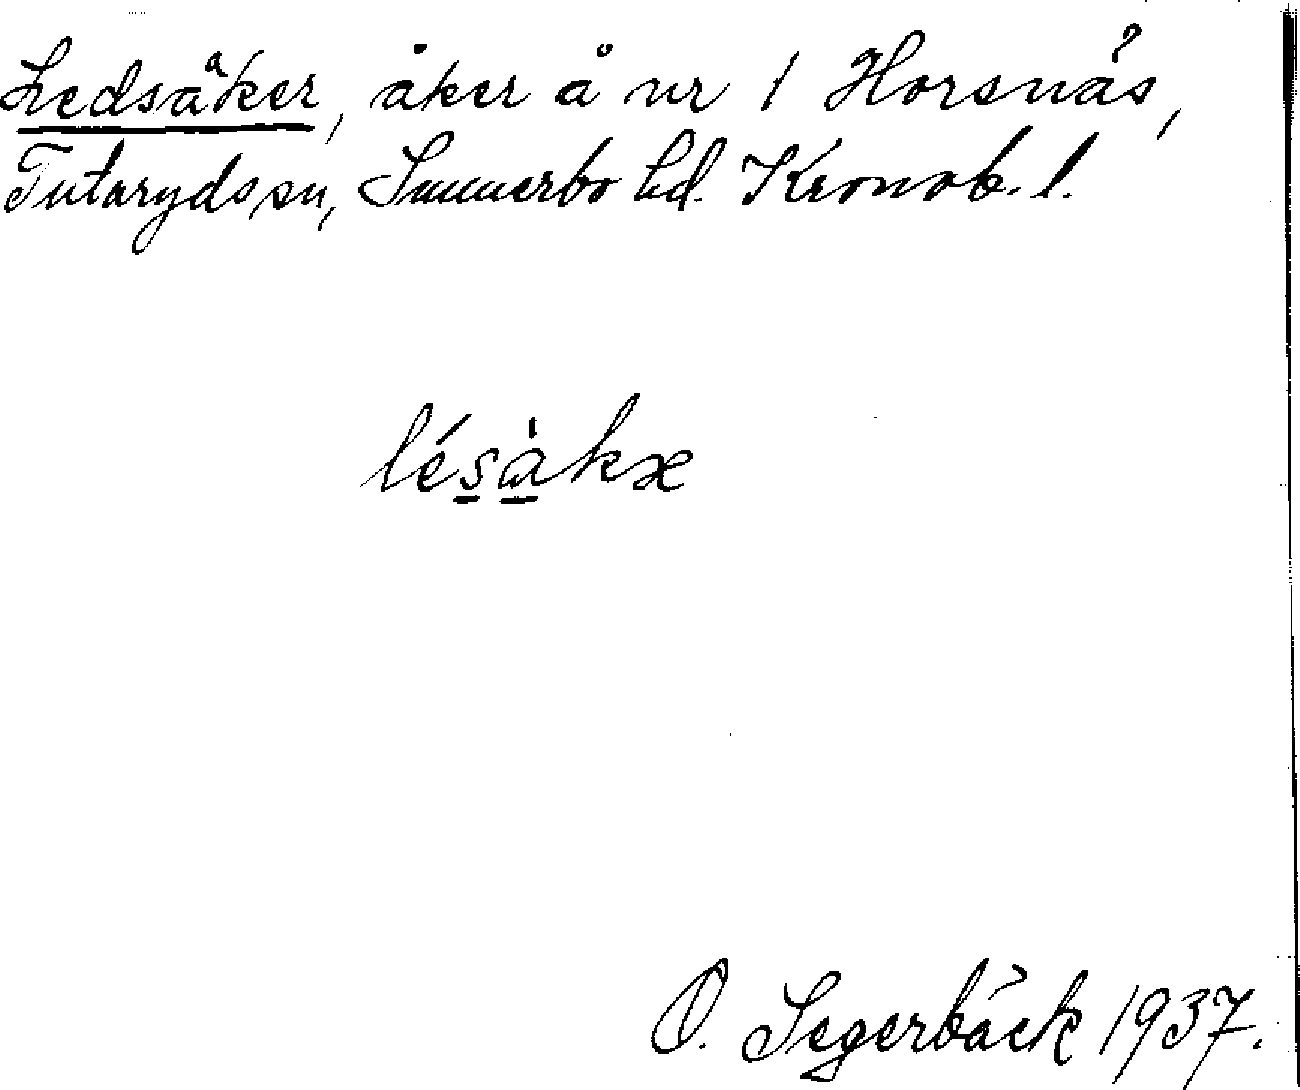 Ledsåker, åker å nr 1 Horsnäs,
Tutaryds sn, Sunnerbo hd. Kronob. l.
lésàkx
O. Segerbäck 1937.